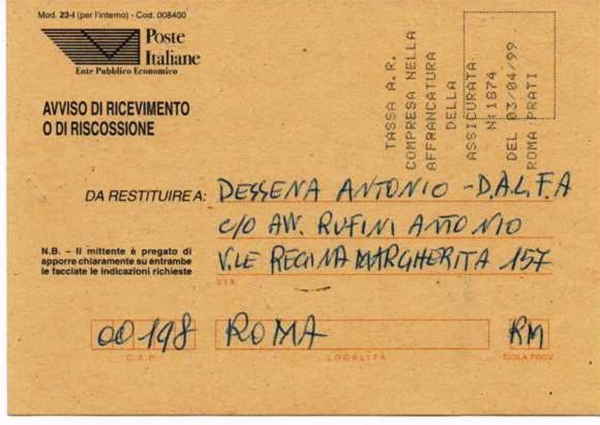 Mod. 23-I (per l'interno) - Cod. 008400
Poste
Italiane
Ente Pubblico Economico
AVVISO DI RICEVIMENTO
O DI RISCOSSIONE
TASSA A.R.
COMPRESA NELLA
AFFRANCATURA
DELLA
ASSICURATA
N:1874
DEL 03/04/99
ROMA PRATI
DA RESTITUIRE A: DESSENA ANTONIO - D.A.L.F.A
C/O AVV. RUFINI ANTONIO
N.B. – Il mittente è pregato di
apporre chiaramente su entrambe
le facciate le indicazioni richieste
V.LE REGINA MARGHERITA 157
VIA
00198 ROMA RM
C.A.P. LOCALITÀ SIGLA PROV.